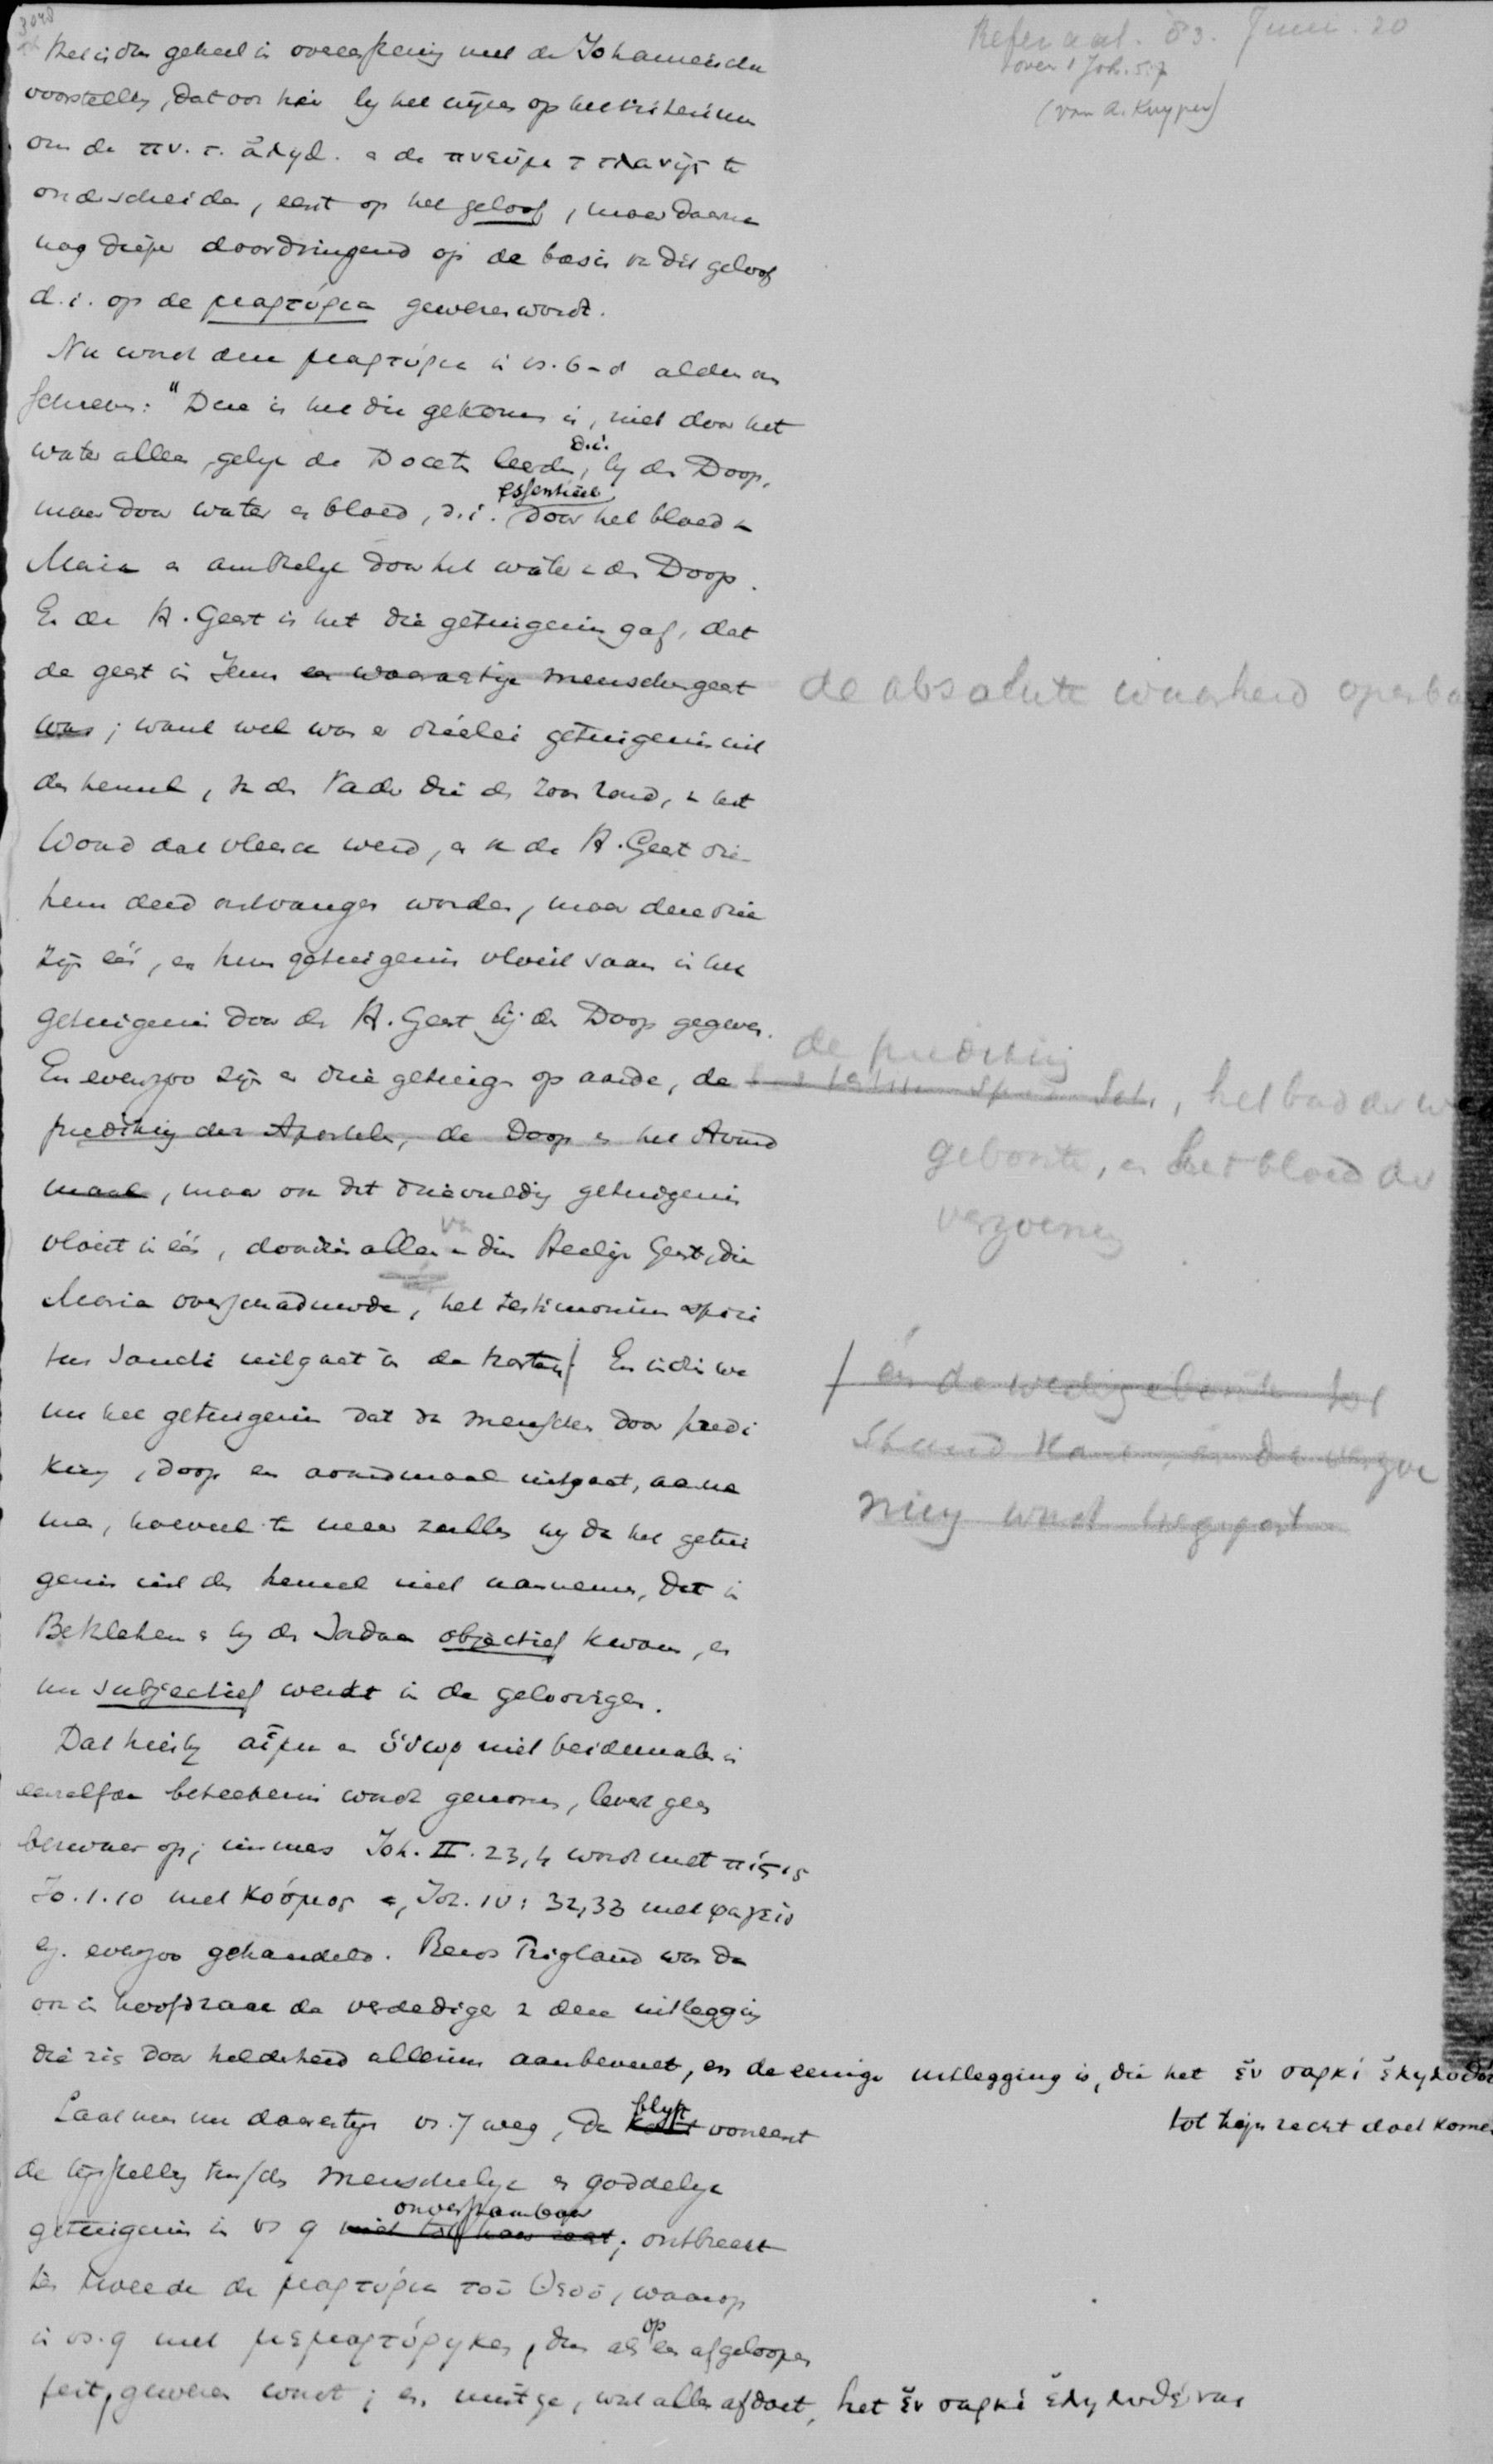 3048
Referaat. 83. Juni. 20
over 1 Joh. 5:7
(van A. Kuyper)
Het is dan geheel in overeenstemming met de Johanneische
voorstelling, dat ook hier bij het wijzen op het kriterium
om de πν. τ. ἀληθ. en de πνεῦμα τ πλανής te
onderscheiden, eerst op het geloof, maar daarna
nog dieper doordringend op de basis van dit geloof
d.i. op de μαρτύρια gewezen wordt.
Nu wordt deze μαρτύρια in vs. 6-8 aldus om
schreven: "Deze is het die gekomen is, niet door het
water alleen, gelijk de Doceten leerden, d.i. bij den Doop,
maar door water en bloed, d.i. essentieel door het bloed van
Maria en ambtelijk door het water van den Doop.
En de H. Geest is het die getuigenis gaf, dat
de geest in Jezus een waarachtige menschengeest
was; de absolute waarheid openba
want wel was er drieërlei getuigenis uit
den hemel, van den Vader die den Zoon zond, van het
Woord dat vleesch werd, en van den H. Geest die
hem deed ontvangen worden, maar deze drie
zijn één, en hun getuigenis vloeit saam in het
getuigenis door den H. Geest bij den Doop gegeven.
En evenzoo zijn er drie getuigen op aarde, de
de prediking
, het bad der we
geboorte, en het bloed der
verzoening
prediking der Apostelen, de Doop en het Avond
maal, maar ook dit drievuldig getuigenis
vloeit in één, doordien alleen van dien Heilige Geest, die
Maria overschaduwde, het testimonium spiri
tus Sancti uitgaat in de harten / En indien we
/ én de wedergeboorte tot
stand komt, én de verzoe
ning wordt toegepast
nu het getuigenis dat de menschen door predi
king, doop en avondmaal uitgaat, aanne
men, hoeveel te meer zullen wij dan het getui
genis uit den hemel niet aannemen, dat in
Bethlehem en bij den Jordaan objectief kwam, en
nu subjectief werkt in de geloovigen.
Dat hierbij αἷμα en ὕδωρ niet beidemalen in
eenzelfden beteekenis wordt genomen, levert geen
bezwaar op; immers Joh. II. 23,4 wordt met πίςις
Jo. 1.10 met κόσμος en, Joh. IV: 32,33 met φαγεῖν
ez. evenzoo gehandeld. Reeds Trigland was dan
ook in hoofdzaak de verdediger van deze uitlegging
die zich door helderheid alleszins aanbeveelt, en de eenige uitlegging is, die het ἐν σαρκί ἐληλυθότ
tot zijn recht doet komen
Laat men nu daarentegen vs. 7 weg, dan blijft vooreerst
de tegenstelling tusschen menschelijke en goddelijke
getuigenis in vs 9 onverstaanbaar; ontbreekt
ten tweede de μαρτύρια τοῦ Θεοῦ, waarop
in vs. 9 met μεμαρτύρηκεν, dus als op een afgeloopen
feit, gewezen wordt; en, mist ge, wat alles afdoet, het ἐν σαρκί ἐληλυθέναι